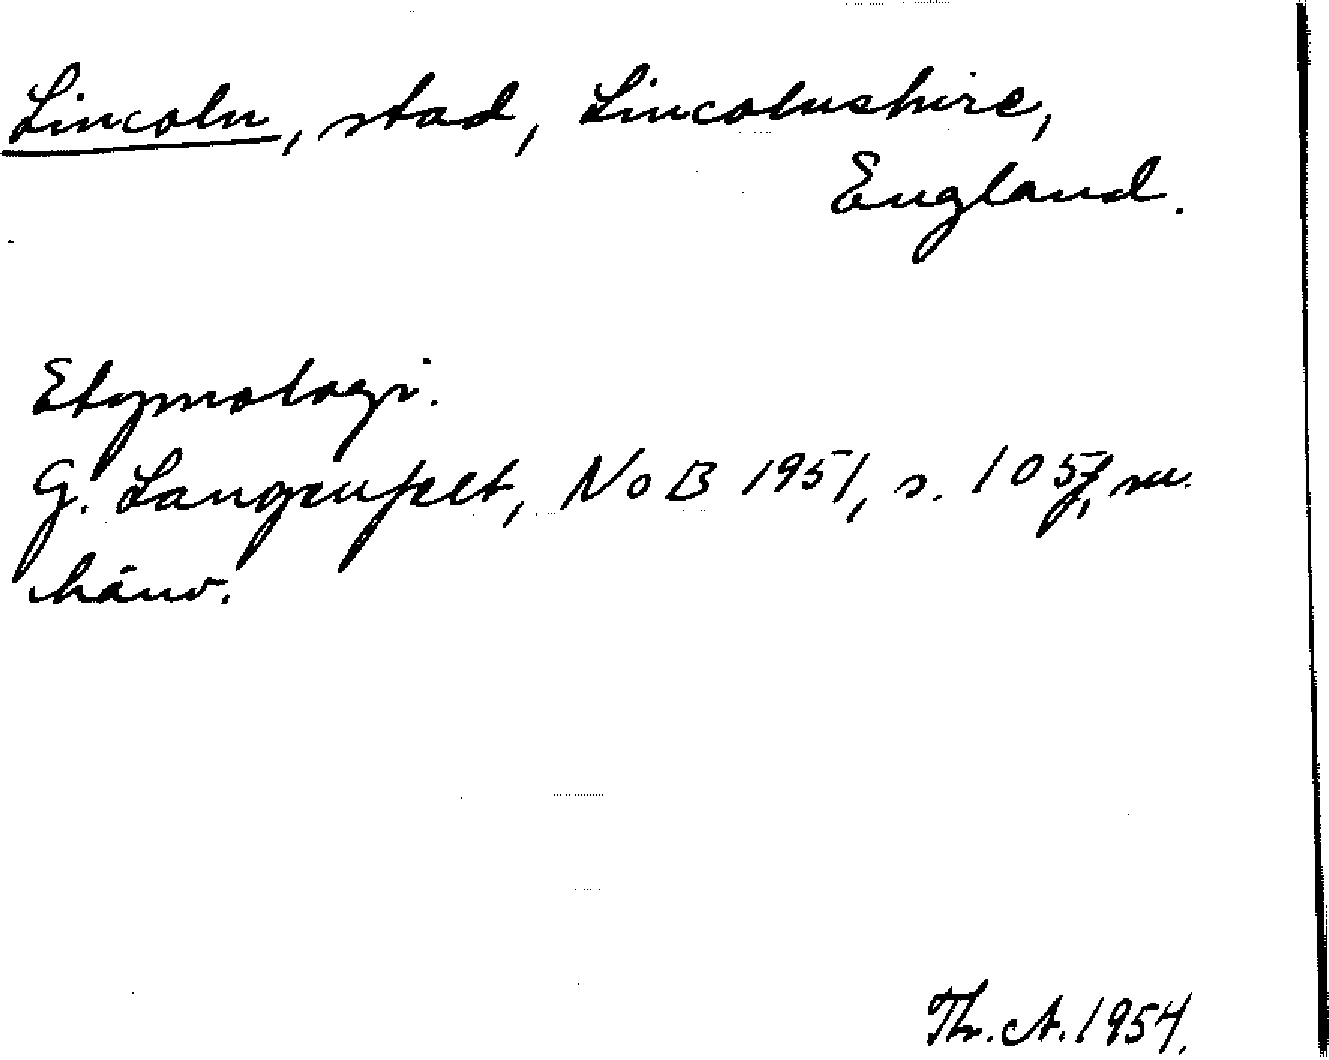 Lincoln, stad, Lincolnshire,
England.
Etymologi.
G. Langenfelt, NoB 1951, s. 105f, m.
hänv.
Th. A. 1954.